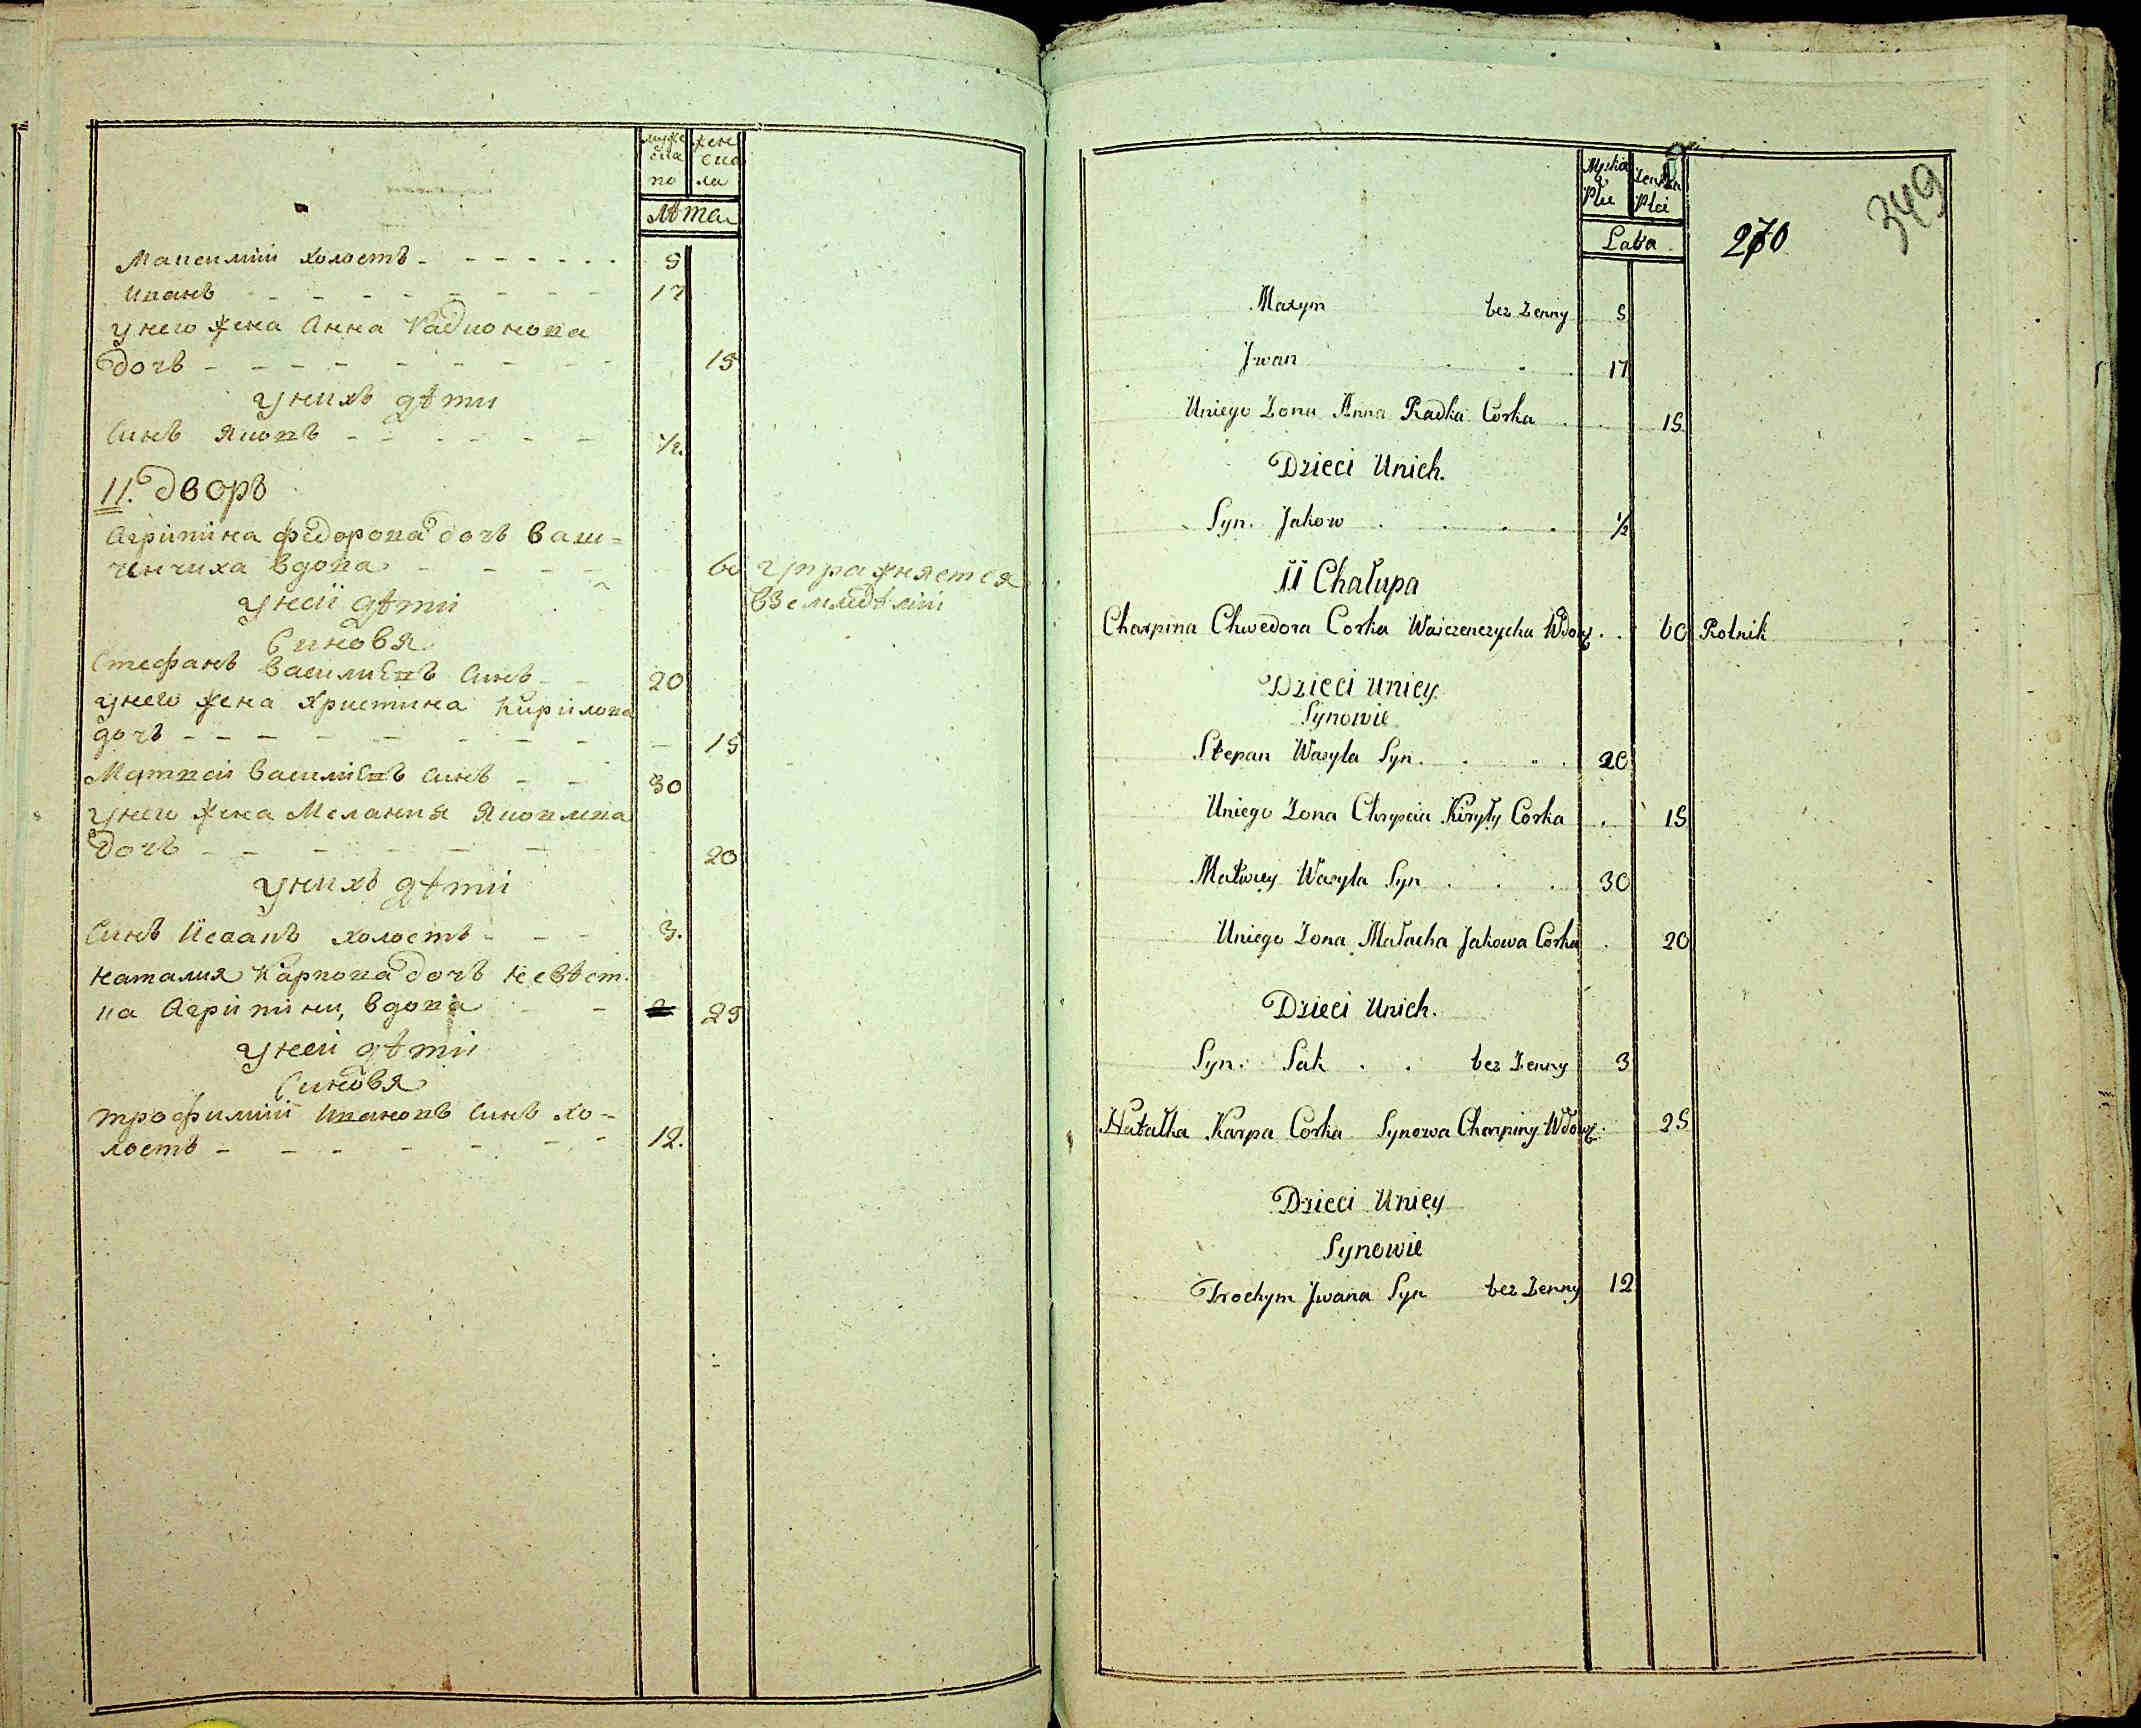 муже ска по
жен ска ла
лѣта
Максимій холостъ - - - - - - - 5
Иванъ - - - - - - - - 17
у него жена Анна Радионова
дочъ - - - - - - - - 15
у нихъ дѣти
Синъ Яковъ - - - - - - 1/2.
11. дворъ
Агрипина федорова дочъ Ваш=
ченчиха вдова - - - - - 60 упражняется
в земледѣлій
у неӥ дѣти
Синовя
Стефанъ Василиевъ Синъ - - 20
у него жена Христина Кирилова
дочъ - - - - - - - - - 15
Матвей Василиевъ Синъ - - 30
у него жена Мелания Яковлева
дочъ - - - - - - - 20
у нихъ дѣти
Синъ Исаакъ холостъ - - - 3.
Наталия Карпова дочъ невѣст
ка Агрипини, вдова - - 25
у неӥ дѣти
Синовя
Трофимій Ивановъ Синъ хо-
лостъ - - - - - - - 12.
349
270
Męska Płci
Zenska Płci
Lata
Maxym bez Zenny 5
Jwan . . . 17
Uniego Zona Anna Radka Corka . . 15
Dzieci Unich.
Syn. Jakow . . . . 1/2
II Chałupa
Charpina Chwedora Corka Waszczenczycha Wdow. . . 60 Rolnik
Dzieci uniey
Synowie
Stepan Wasyla Syn. . . . 20
Uniego Zona Chrypcia Kiryły Corka . 15
Matwiey Wasyla Syn . . . 30
Uniego Zona Małacha Jakowa Corka . 20
Dzieci Unich.
Syn. Sak . . bez Zenny 3
Natałka Karpa Corka Synowa Charpiny Wdow. . 25
Dzieci Uniey
Synowie
Trochym Jwana Syn bez Zenny 12